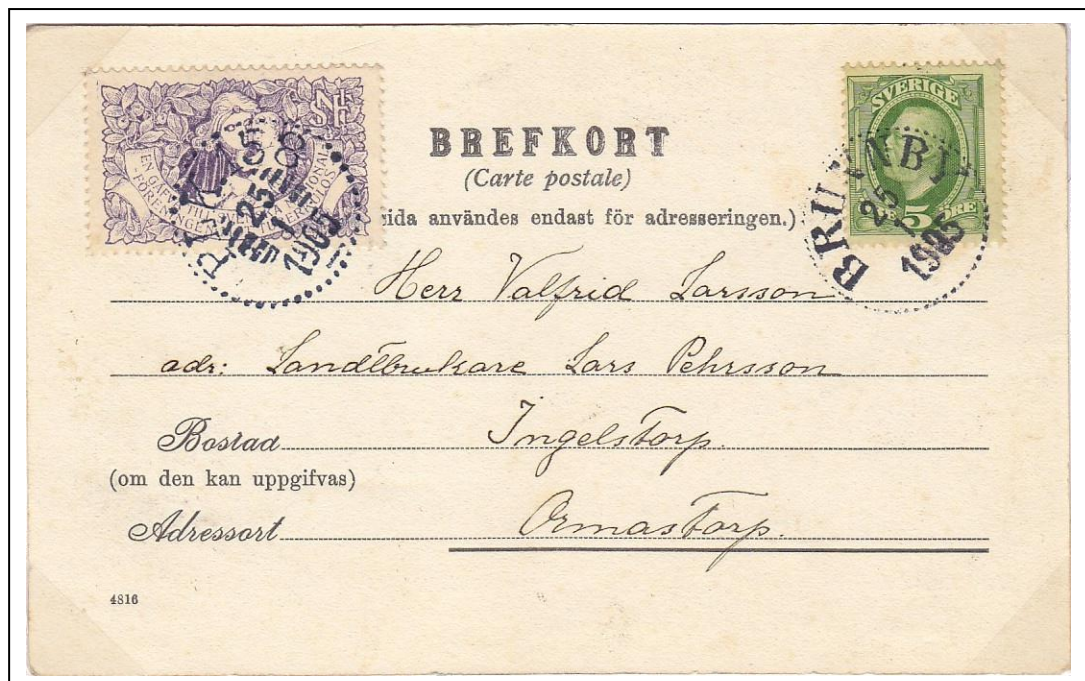 SVERIGE
BREFKORT
(Carte postale)
ida användes endast för adresseringen.)
5 ÖRE
25
1
1905
25
1
1905
Herr Valfrid Larsson
adr: Landtbrukare Lars Pehrsson
Bostad Ingelstorp.
(om den kan uppgifvas)
Adressort Ormastorp.
4816